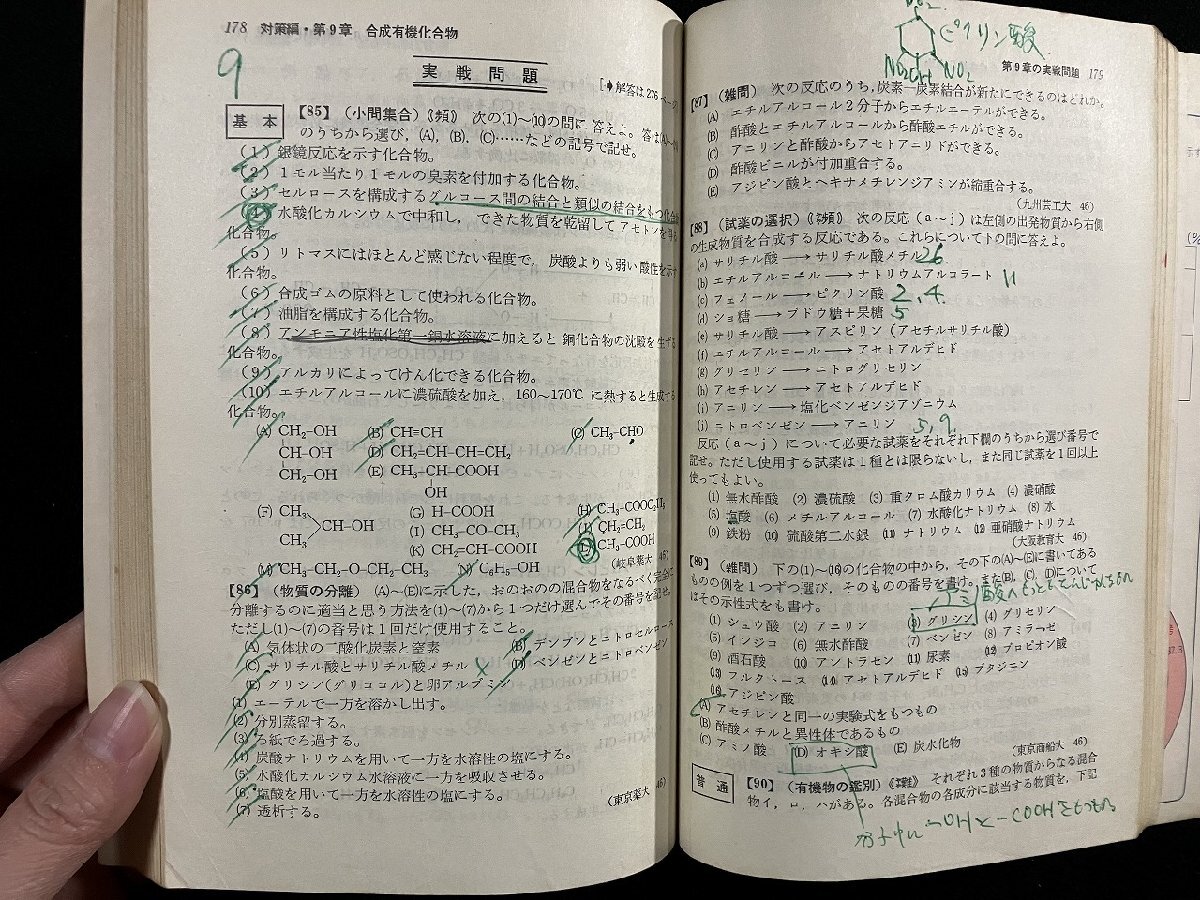 178 対策編・第9章 合成有機化合物
9
実戦問題
[➡解答は276ページ
基本
【85】(小問集合)《頻》 次の(1)〜(10)の問に答えよ。答は(A)〜(N)
のうちから選び,(A),(B),(C)……などの記号で記せ。
(1) 銀鏡反応を示す化合物。
(2) 1モル当たり1モルの臭素を付加する化合物。
(3) セルロースを構成するグルコース間の結合と類似の結合をもつ化合物
(4) 水酸化カルシウムで中和し,できた物質を乾留してアセトンを得る
化合物。
(5) リトマスにはほとんど感じない程度で,炭酸よりも弱い酸性を示す
化合物。
(6) 合成ゴムの原料として使われる化合物。
(7) 油脂を構成する化合物。
(8) アンモニア性塩化第一銅水溶液に加えると銅化合物の沈殿を生ずる
化合物。
(9) アルカリによってけん化できる化合物。
(10) エチルアルコールに濃硫酸を加え,160〜170℃に熱すると生成する
化合物。
(A) CH₂-OH
CH-OH
CH₂-OH
(B) CH≡CH
(C) CH₃-CHO
(D) CH₂=CH-CH=CH₂
(E) CH₃-CH-COOH
OH
(F) CH₃
CH₃ >CH-OH
(G) H-COOH
(H) CH₃-COOC₂H₅
(I) CH₃-CO-CH₃
(J) CH₂=CH₂
(K) CH₂=CH-COOH
(L) CH₃-COOH
(M) CH₃-CH₂-O-CH₂-CH₃
(N) C₆H₅-OH
(岐阜薬大 46)
【86】(物質の分離) (A)〜(E)に示した,おのおのの混合物をなるべく完全に
分離するのに適当と思う方法を(1)〜(7)から1つだけ選んでその番号を記せ。
ただし(1)〜(7)の番号は1回だけ使用すること。
(A) 気体状の二酸化炭素と窒素
(B) デンプンとニトロセルロース
(C) サリチル酸とサリチル酸メチル
(D) ベンゼンとニトロベンゼン
(E) グリシン(グリココル)と卵アルブミン
(1) エーテルで一方を溶かし出す。
(2) 分別蒸留する。
(3) ろ紙でろ過する。
(4) 炭酸ナトリウムを用いて一方を水溶性の塩にする。
(5) 水酸化カルシウム水溶液に一方を吸収させる。
(6) 塩酸を用いて一方を水溶性の塩にする。
(7) 透析する。
(東京薬大 46)
NO₂
ピクリン酸
NO₂ OH NO₂
第9章の実戦問題 179
【87】(雑問) 次の反応のうち,炭素一炭素結合が新たにできるのはどれか。
(A) エチルアルコール2分子からエチルエーテルができる。
(B) 酢酸とエチルアルコールから酢酸エチルができる。
(C) アニリンと酢酸からアセトアニリドができる。
(D) 酢酸ビニルが付加重合する。
(E) アジピン酸とヘキサメチレンジアミンが縮重合する。
(九州芸工大 46)
【88】(試薬の選択)《頻》 次の反応(a〜j)は左側の出発物質から右側
の生成物質を合成する反応である。これらについて下の問に答えよ。
(a) サリチル酸 ⟶ サリチル酸メチル 2 6
(b) エチルアルコール ⟶ ナトリウムアルコラート 11
(c) フェノール ⟶ ピクリン酸 2,4
(d) ショ糖 ⟶ ブドウ糖+果糖 5
(e) サリチル酸 ⟶ アスピリン(アセチルサリチル酸)
(f) エチルアルコール ⟶ アセトアルデヒド
(g) グリセリン ⟶ ニトログリセリン
(h) アセチレン ⟶ アセトアルデヒド
(i) アニリン ⟶ 塩化ベンゼンジアゾニウム
(j) ニトロベンゼン ⟶ アニリン 5,9
反応(a〜j)について必要な試薬をそれぞれ下欄のうちから選び番号で
記せ。ただし使用する試薬は1種とは限らないし,また同じ試薬を1回以上
使ってもよい。
(1) 無水酢酸 (2) 濃硫酸 (3) 重クロム酸カリウム (4) 濃硝酸
(5) 塩酸 (6) メチルアルコール (7) 水酸化ナトリウム (8) 水
(9) 鉄粉 (10) 硫酸第二水銀 (11) ナトリウム (12) 亜硝酸ナトリウム
(大阪教育大 46)
【89】(雑問) 下の(1)〜(16)の化合物の中から,その下の(A)〜(E)に書いてある
ものの例を1つずつ選び,そのものの番号を書け。また(B),(C),(D)について
はその示性式をも書け。
(1) シュウ酸 (2) アニリン (3) グリシン (4) グリセリン
(5) インジゴ (6) 無水酢酸 (7) ベンゼン (8) アミラーゼ
(9) 酒石酸 (10) アントラセン (11) 尿素 (12) プロピオン酸
(13) フルクトース (14) アセトアルデヒド (15) ブタジエン
(16) アジピン酸
(A) アセチレンと同一の実験式をもつもの
(B) 酢酸メチルと異性体であるもの
(C) アミノ酸 (D) オキシ酸 (E) 炭水化物
(東京商船大 46)
普通
【90】(有機物の鑑別)《難》 それぞれ3種の物質からなる混合
物イ,ロ,ハがある。各混合物の各成分に該当する物質を,下記